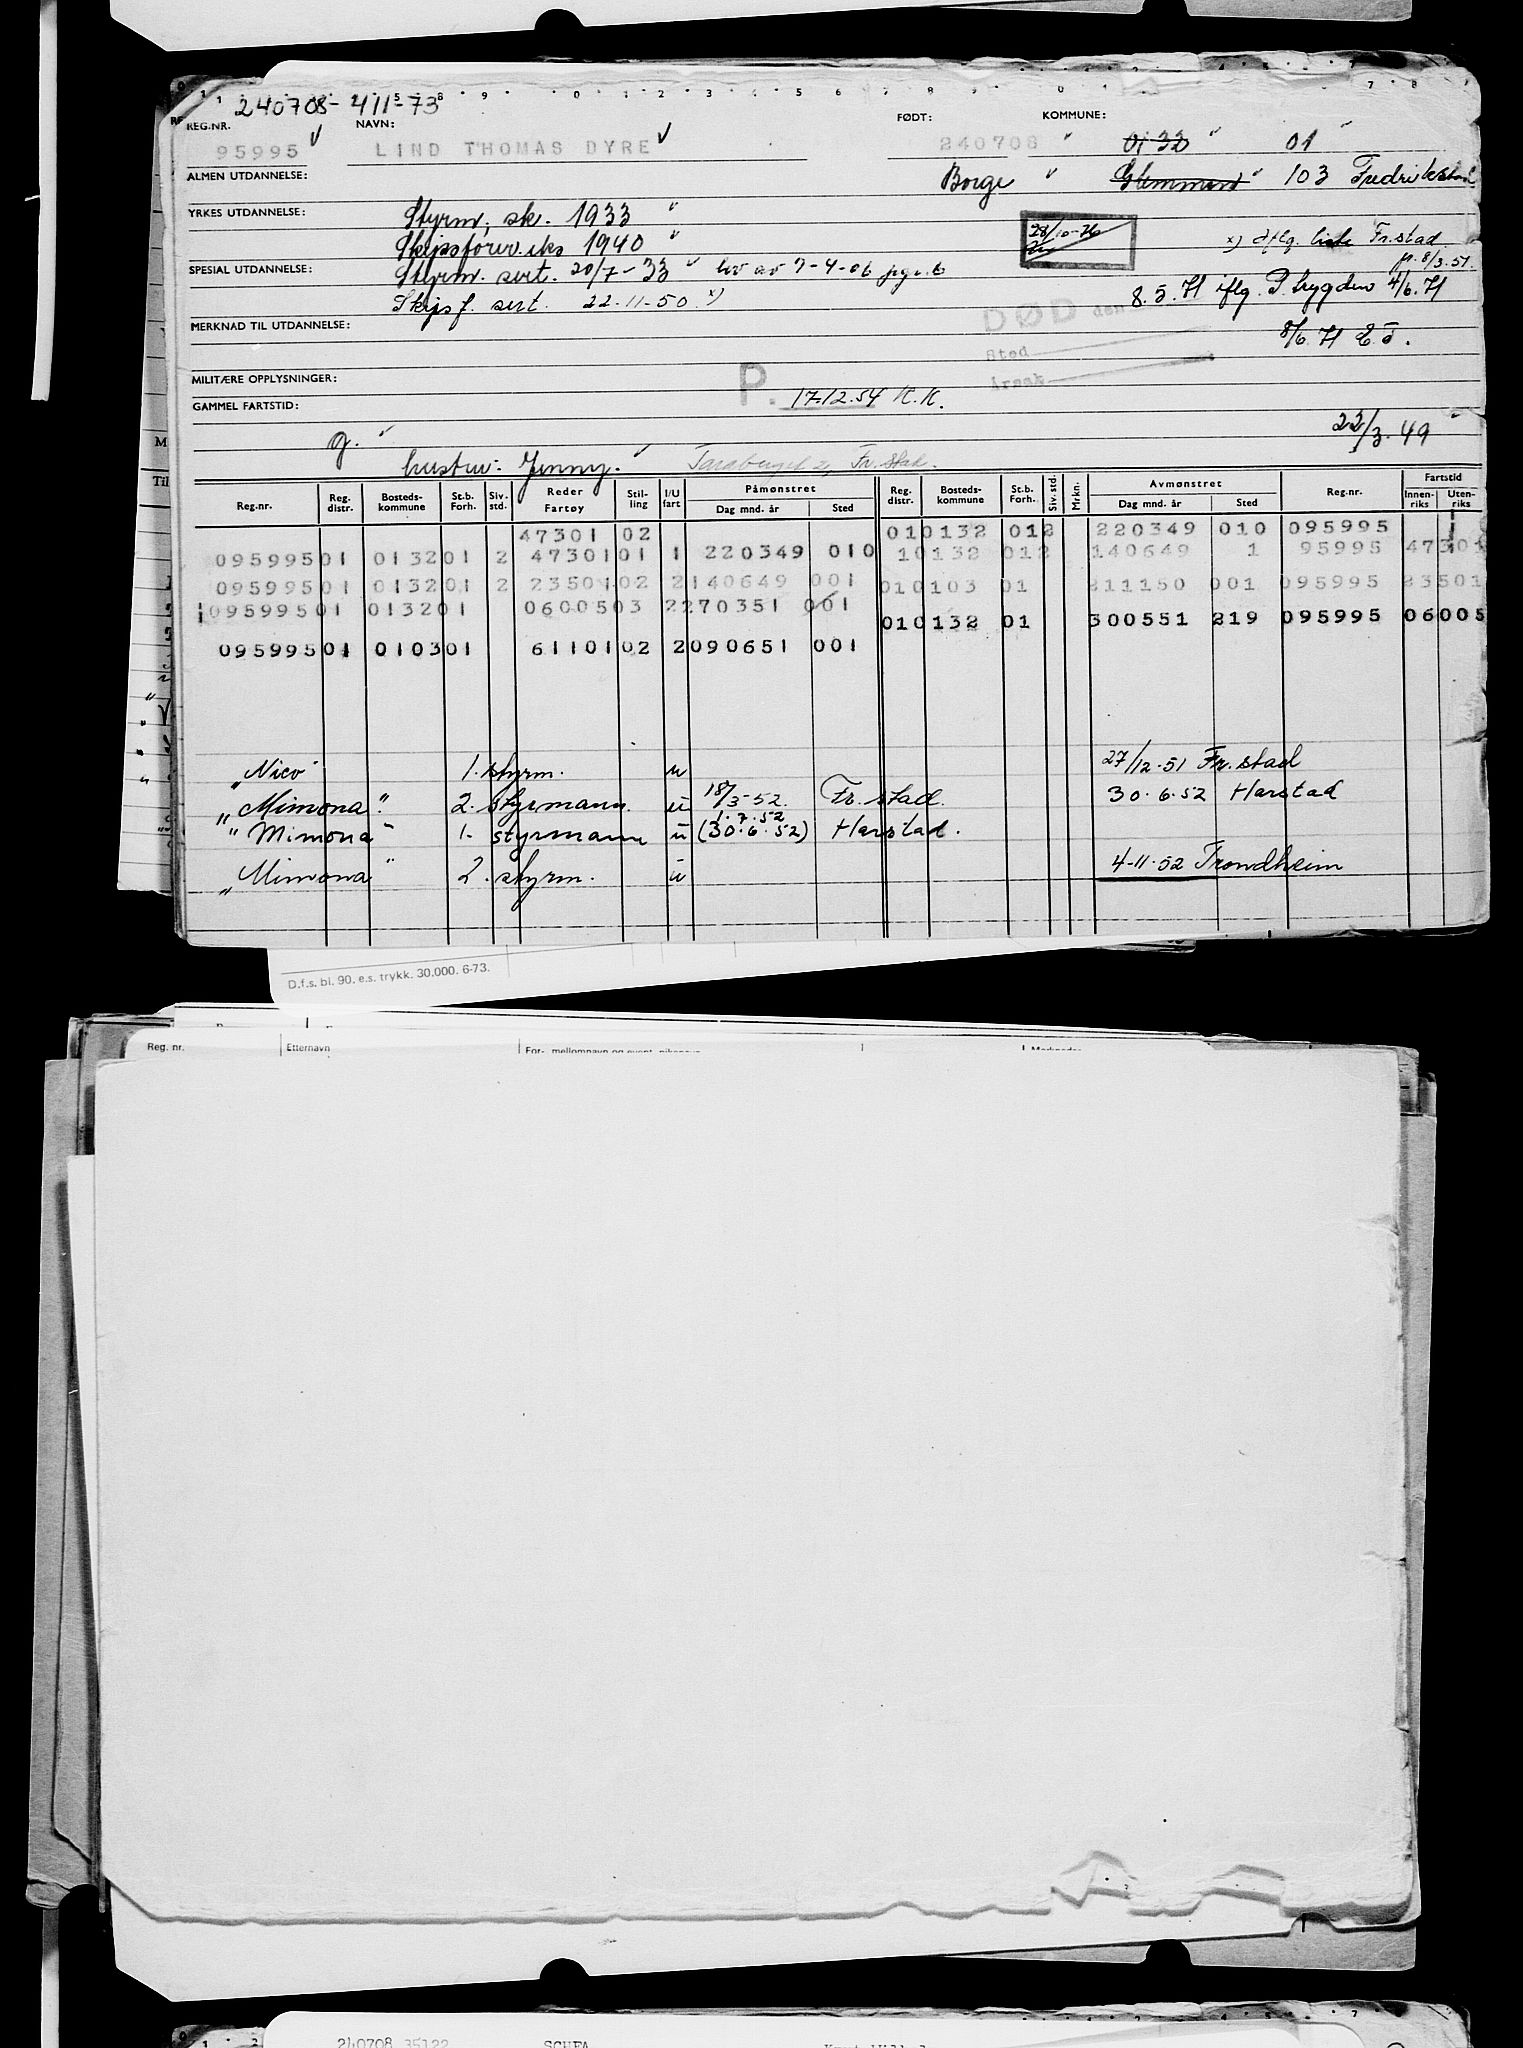 240708-411-73
REG.NR. NAVN: FØDT: KOMMUNE:
95995 LIND THOMAS DYRE 240708 0132 01
ALMEN UTDANNELSE: Borge Glemmen 103 Fredrikstad
YRKES UTDANNELSE: Styrm. sk. 1933
Skipsfører eks 1940 28/10-76 x) Iflg. liste Fr.stad
SPESIAL UTDANNELSE: Styrm. sert. 20/7-33 7-4-06 pr. 8/3.51.
Skipsf. sert. 22-11-50 x) 8.5.71 iflg. P.trygden 4/6.71
MERKNAD TIL UTDANNELSE: DØD den
Sted 8/6.71
MILITÆRE OPPLYSNINGER: Årsak
GAMMEL FARTSTID: P. 17.12.54 K.K.
g. 22/3.49
hustru: Jenny. Fr.stad.
Reg.nr. Reg. distr. Bosteds- kommune St.b. Forh. Siv. std. Reder Fartøy Stil- ling I/U fart Påmønstret Dag mnd. år Sted Reg. distr. Bosteds- kommune St.b. Forh. Siv. std. Mrkn. Avmønstret Dag mnd. år Sted Reg.nr. Fartstid Innen- riks Uten- riks
47301 02 010132 012 220349 010 095995
095995 01 0132 01 2 47301 01 1 220349 010 10132 012 140649 1 95995 47301
095995 01 0132 01 2 23501 02 2 140649 001 010103 01 211150 001 095995 23501
095995 01 0132 01 06005 03 2 270351 001
010132 01 300551 219 095995 06005
095995 01 0103 01 61101 02 2 090651 001
"Nico" 1. styrm. u 27/12-51 Fr.stad
"Mimona" 2. styrmann. u 18/3-52. Fr.stad. 30.6.52 Harstad
1.7.52
"Mimona" 1. styrmann u (30.6.52) Harstad.
"Mimona" 2. styrm. u 4-11-52 Trondheim
D.f.s. bl. 90. e.s. trykk. 30.000. 6-73.
Reg. nr. Etternavn
240708 35122